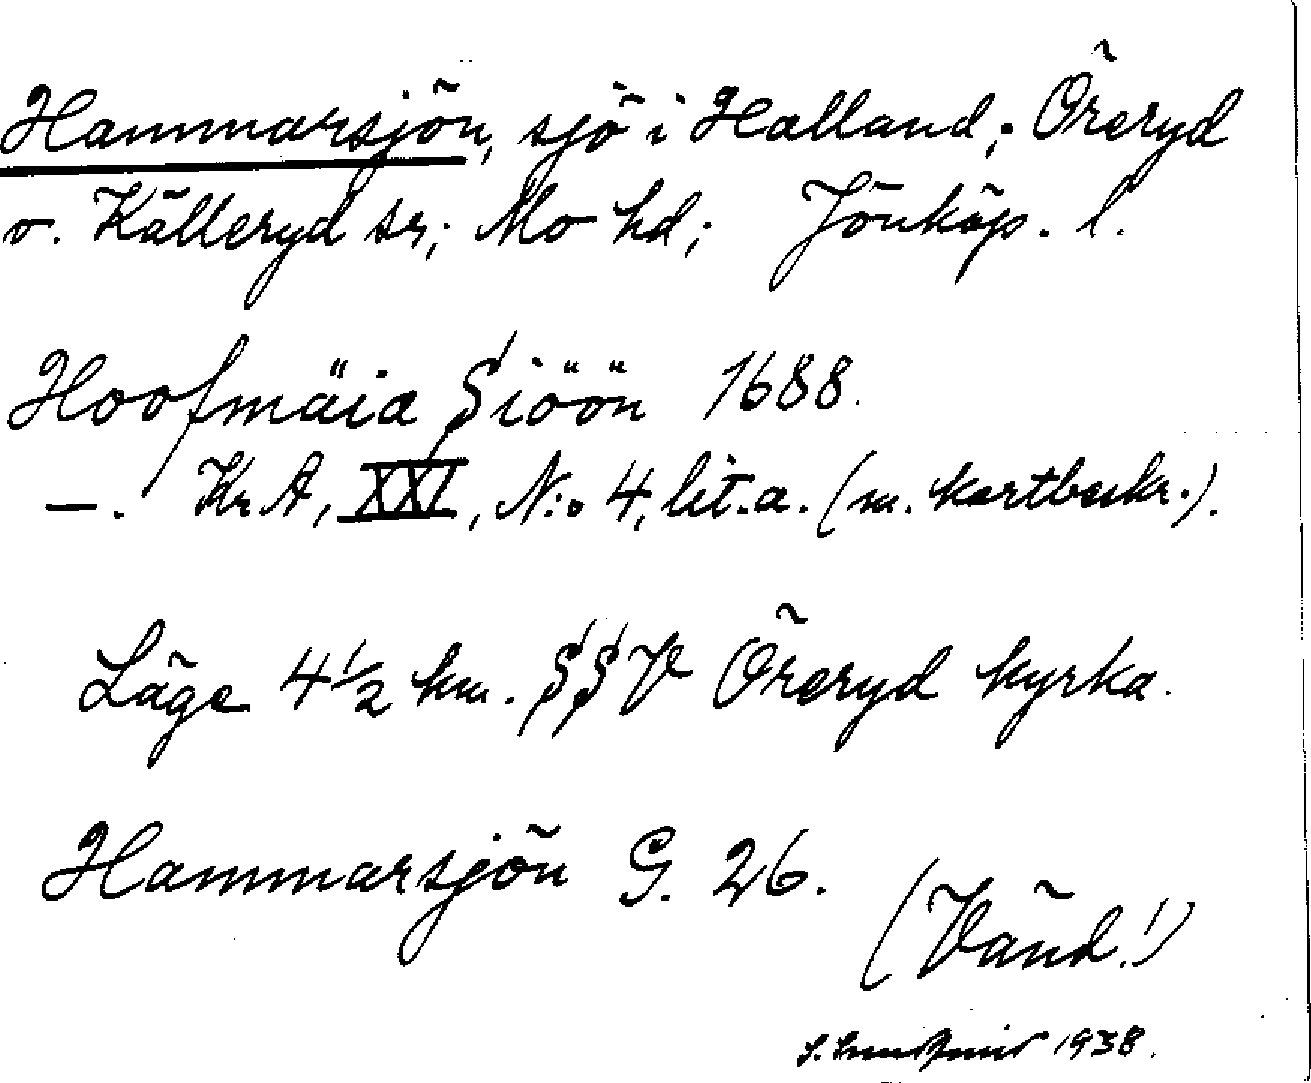 Hammarsjön, sjö i Halland; Öreryd
o. Källeryd sr; Mo hd; Jönköp. l.
Hoofmäia Siöön 1688.
—. Kr. A, XXI, N:o 4, lit. a. (m. kartbeskr.).
Läge 4 1/2 km. SSV Öreryd kyrka.
Hammarsjön G. 26.
(Vänd!)
1938.